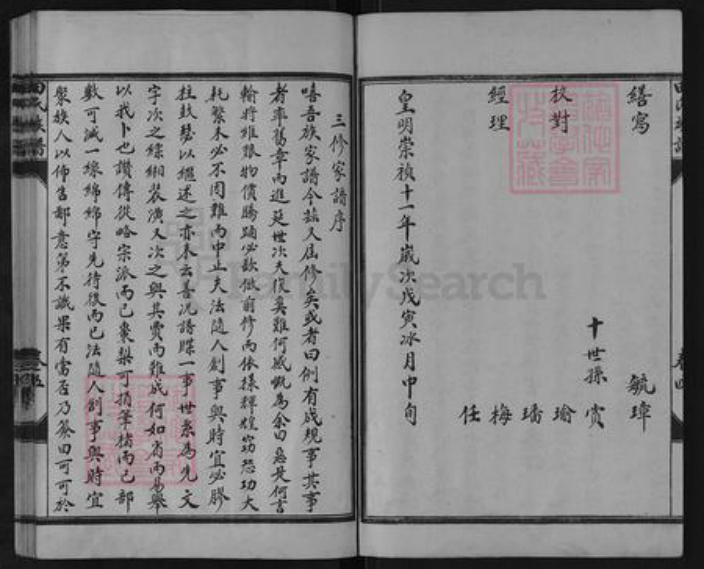 繕寫 毓璋
十世孫 賓
校對 瑜
璠
經理 梅
任
皇明崇禎十一年歲次戊寅冰月中旬
三修家譜序
嘻吾族家譜今茲又屆修矣或者曰例有成規事其事
者率舊章而進延世次夫復奚難何感慨為余曰惡是何言
輸將維艱物價騰踊必欲倣前修而依樣輝煌竊恐功大
耗繁未必不因難而中止夫法隨人創事與時宜必膠
柱鼓瑟以繼述之亦未云善況譜牒一事世系為先文
字次之綠緗裝潢又次之與其賈而難成何如省而易舉
以我卜也讚傳從略宗派而已棗梨可捐筆楮而已部
數可減一線綿綿守先待後而已法隨人創事與時宜
聚族人以佈告鄙意第不識果有當否乃僉曰可可於
FamilySearch